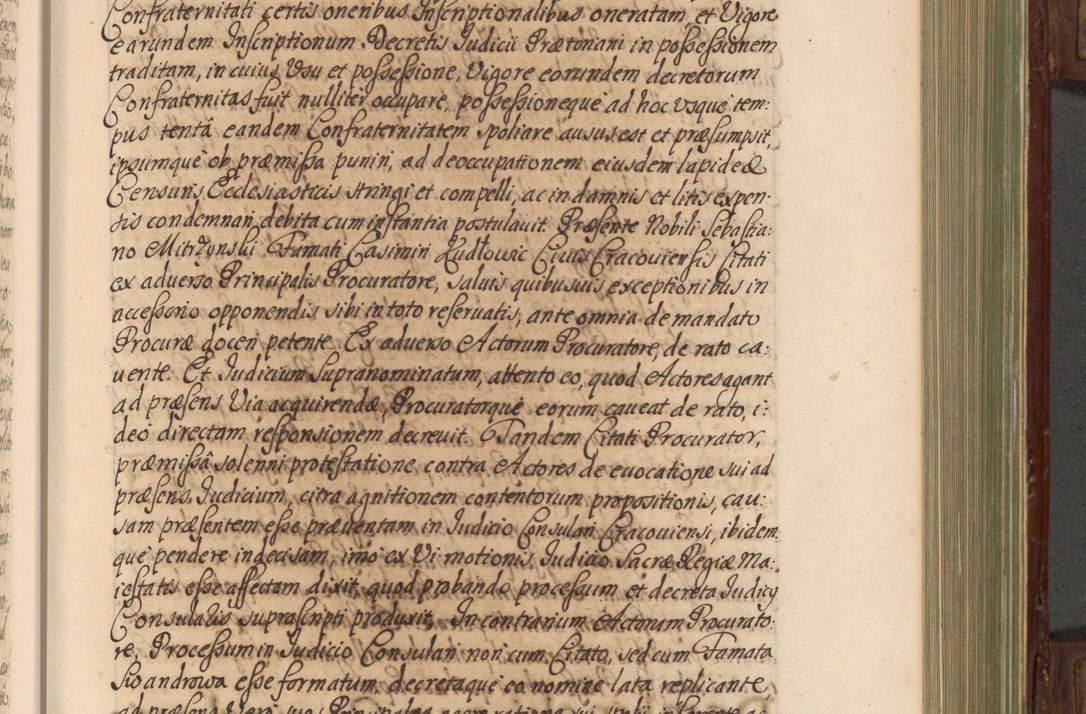 Confraternitati certis oneribus Inscriptionalibus oneratam, et Vigore
earundem Inscriptionum Decretis Judicii Prætoriani in possessionem
traditam, in cuius Usu et possessione, Vigore eorundem decretorum
Confraternitas fuit nulliter occupare, possessioneque ad hoc usque tem:
pus tentâ eandem Confraternitatem spoliare ausus est et præsumpsit,
ipsumque ob præmissa puniri, ad deoccupationem eiusdem lapideæ
Censuris Ecclesiasticis stringi et compelli, ac in damnis et litis expen:
sis condemnari debita cum instantia postulavit. Præsente Nobili Sebastia:
no Mitrżynski Famati Casimiri Kudłowic Civis Cracoviensis Citati
ex adverso Principalis Procuratore, salvis quibusvis exceptionibus in
accessorio opponendis sibi in toto reservatis, ante omnia de mandato
Procuræ doceri petente. Ex adverso Actorum Procuratore, de rato ca:
vente. Et Judicium Supranominatum, attento eo, quod Actores agant
ad præsens Via acquirendæ, Procuratorque eorum caveat de rato, i:
deo directam responsionem decrevit. Tandem Citati Procurator,
præmissâ solenni protestatione contra Actores de evocatione sui ad
præsens Judicium, citra agnitionem contentorum propositionis, cau:
sam præsentem esse præventam in Judicio Consulari Cracoviensi, ibidem
que pendere indecisam, imo ex Vi motionis Judicio Sacræ Regiæ Ma:
iestatis esse affectam dixit, quod probando processum et decreta Judicy
Consularis suprascripti produxit. In contrarium Actorum Procurato:
re, Processum in Judicio Consulari non cum Citato, sed cum Famata
Swandrowa esse formatum, decretaque eo nomine lata replicante,
ad præsens